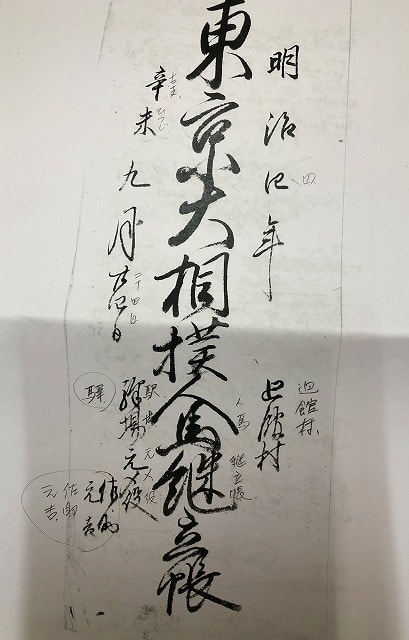 明治四年
四
廻館村
廻館村
東京大相撲人馬継立帳
人馬 継立帳
辛未九月廿四日
ひつじ
二十四日
驛場元〆役
駅場元〆役
驛
佐助
元吉
佐助
元吉